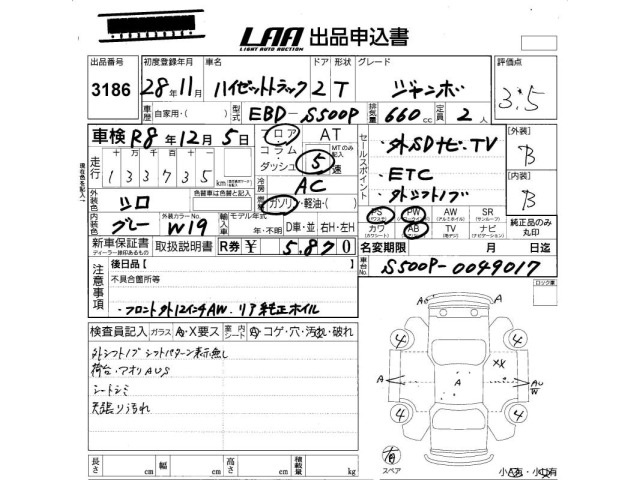 LAA 出品申込書
LIGHT AUTO AUCTION
出品番号 初度登録年月 車名 ドア 形状 グレード 評価点
3186 28年11月 ハイゼットトラック 2 T ジャンボ 3.5
車歴 自家用・( ) 型式 EBD-S500P 排気量 660cc 定員 2人
車検 R8年12月5日
走行 133735 km
ロア・コラム・ダッシュ
AT
MTのみ記入
5速
冷房 AC
ガソリン・軽油・( )
セールスポイント
・外SDナビ・TV
・ETC
・外シフトノブ
【外装】 B
【内装】 B
外装色 シロ 色替車は色替と記入
内装色 グレー 外装カラーNo. W19 輸入車 モデル年式 年・不明 D車・並 右H・左H
PS PW AW SR
カワ AB TV ナビ
純正品のみ丸印
新車保証書 取扱説明書 R券 ¥ 5.870
ディーラー捺印あるもの
名変期限 月 日迄
車台No. S500P-0049017
現在色名記入
注意事項
後日品〔 〕
不具合箇所等
・フロント外12インチAW、リア純正ホイル
ロック車
検査員記入 ガラス A・X要ス 室内シート A・コゲ・穴・汚れ・破れ
外シフトノブシフトパターン表示無し
荷台・アオリAUS
シートシミ
天張り汚れ
4 4
A A XX AU W
4 4
有
スペア
長さ cm 幅 cm 高さ cm 積載量 kg
小A有・小U有